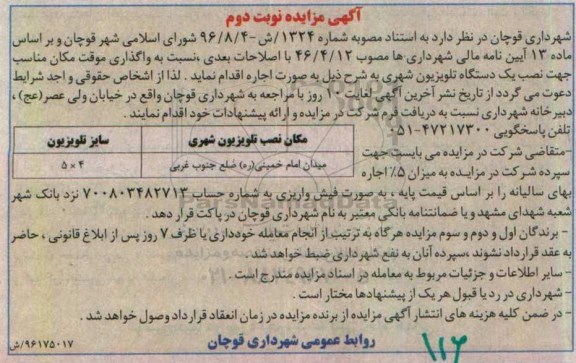 آگهی مزایده نوبت دوم
شهرداری قوچان در نظر دارد به استناد مصوبه شماره ۱۳۲۴/ش-۹۶/۸/۴ شورای اسلامی شهر قوچان و بر اساس
ماده ۱۳ آیین نامه مالی شهرداری ها مصوب ۴۶/۴/۱۲ با اصلاحات بعدی ،نسبت به واگذاری موقت مکان مناسب
جهت نصب یک دستگاه تلویزیون شهری به شرح ذیل به صورت اجاره اقدام نماید . لذا از اشخاص حقوقی و اجد شرایط
دعوت می گردد از تاریخ نشر آخرین آگهی لغایت ۱۰ روز با مراجعه به شهرداری قوچان واقع در خیابان ولی عصر(عج) ،
دبیرخانه شهرداری نسبت به دریافت فرم شرکت در مزایده و ارائه پیشنهادات خود اقدام نمایند .
تلفن پاسخگویی ۴۷۲۱۷۳۰۰-۰۵۱
مکان نصب تلویزیون شهری	سایز تلویزیون
میدان امام خمینی(ره) ضلع جنوب غربی	۴ × ۵
-متقاضی شرکت در مزایده می بایست جهت
سپرده شرکت در مزایده به میزان ۵٪ اجاره
بهای سالیانه را بر اساس قیمت پایه ، به صورت فیش واریزی به شماره حساب ۷۰۰۸۰۳۴۸۲۷۱۳ نزد بانک شهر
شعبه شهدای مشهد و یا ضمانتنامه بانکی معتبر به نام شهرداری قوچان در پاکت قرار دهد .
- برندگان اول و دوم و سوم مزایده هرگاه به ترتیب از انجام معامله خودداری یا ظرف ۷ روز پس از ابلاغ قانونی ، حاضر
به عقد قرارداد نشوند ،سپرده آنان به نفع شهرداری ضبط خواهد شد.
- سایر اطلاعات و جزئیات مربوط به معامله در اسناد مزایده مندرج است .
- شهرداری در رد یا قبول هر یک از پیشنهادها مختار است .
- در ضمن کلیه هزینه های انتشار آگهی مزایده از برنده مزایده در زمان انعقاد قرارداد وصول خواهد شد .
روابط عمومی شهرداری قوچان
۹۶۱۷۵۰۱۷/ش